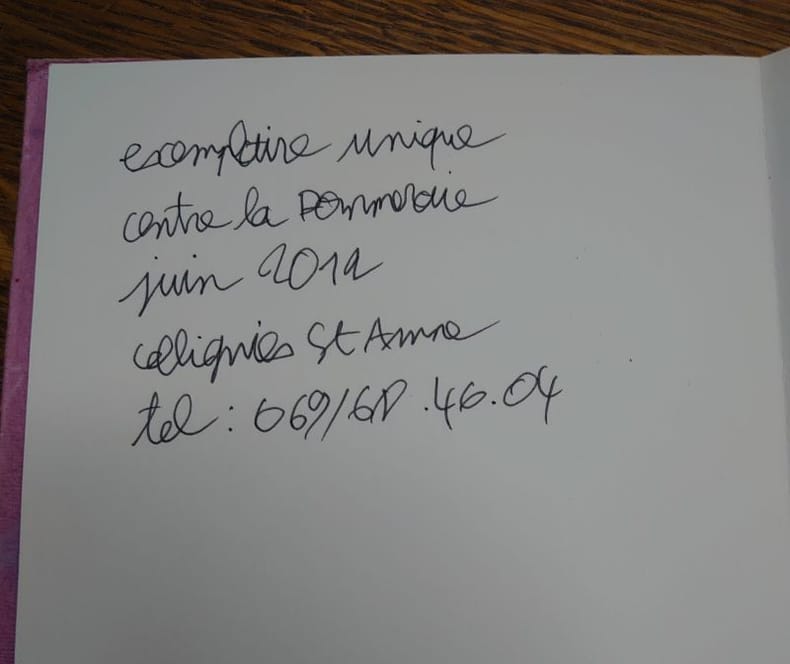 exemplaire unique
centre la Pommeraie
juin 2012
cellignies St Anne
tel : 069/60.46.04